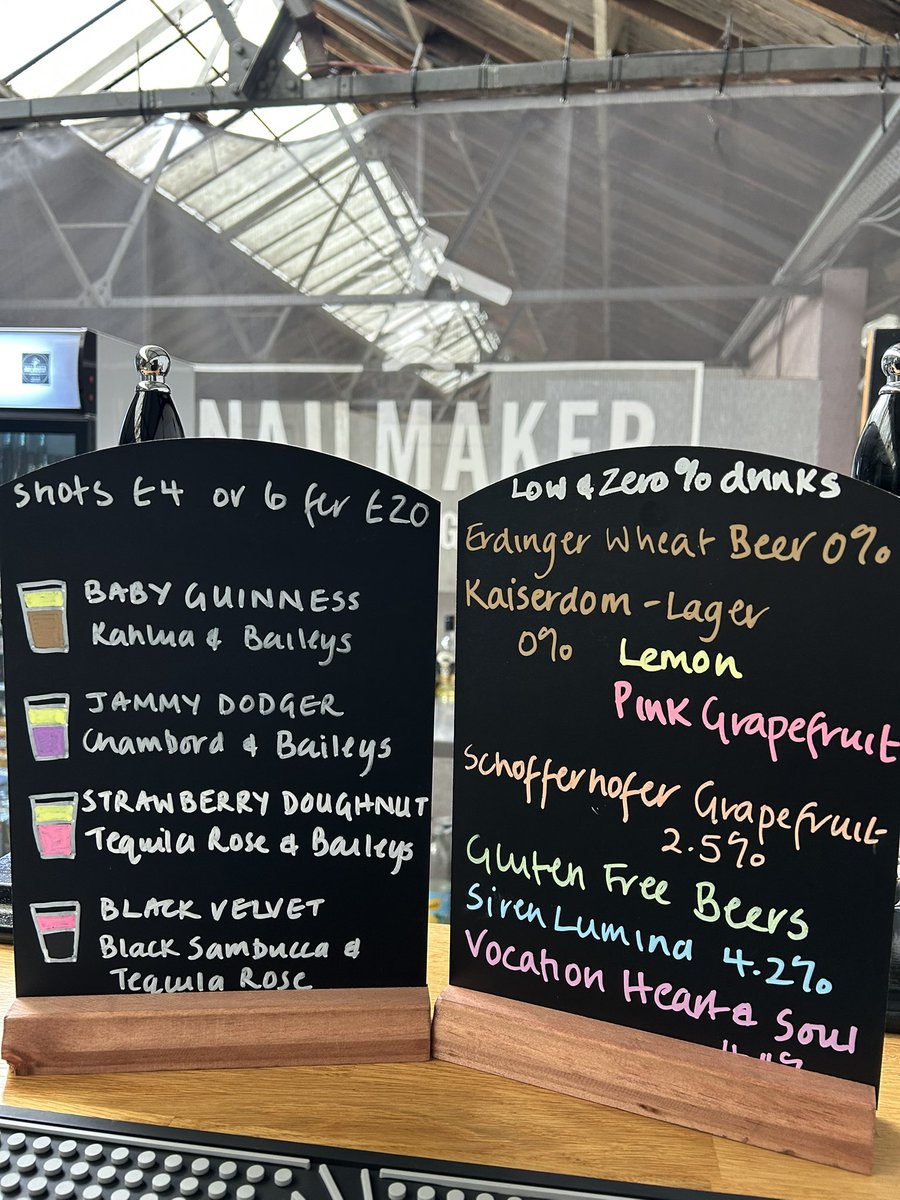 NAIL MAKER
shots £4 or 6 for £20
BABY GUINNESS
Kahlua & Baileys
JAMMY DODGER
Chambord & Baileys
STRAWBERRY DOUGHNUT
Tequila Rose & Baileys
BLACK VELVET
Black Sambucca &
Tequila Rose
Low & Zero % drinks
Erdinger Wheat Beer 0%
Kaiserdom - Lager
0% Lemon
Pink Grapefruit
Schofferhofer Grapefruit
2.5%
Gluten Free Beers
Siren Lumina 4.2%
Vocation Heart & Soul